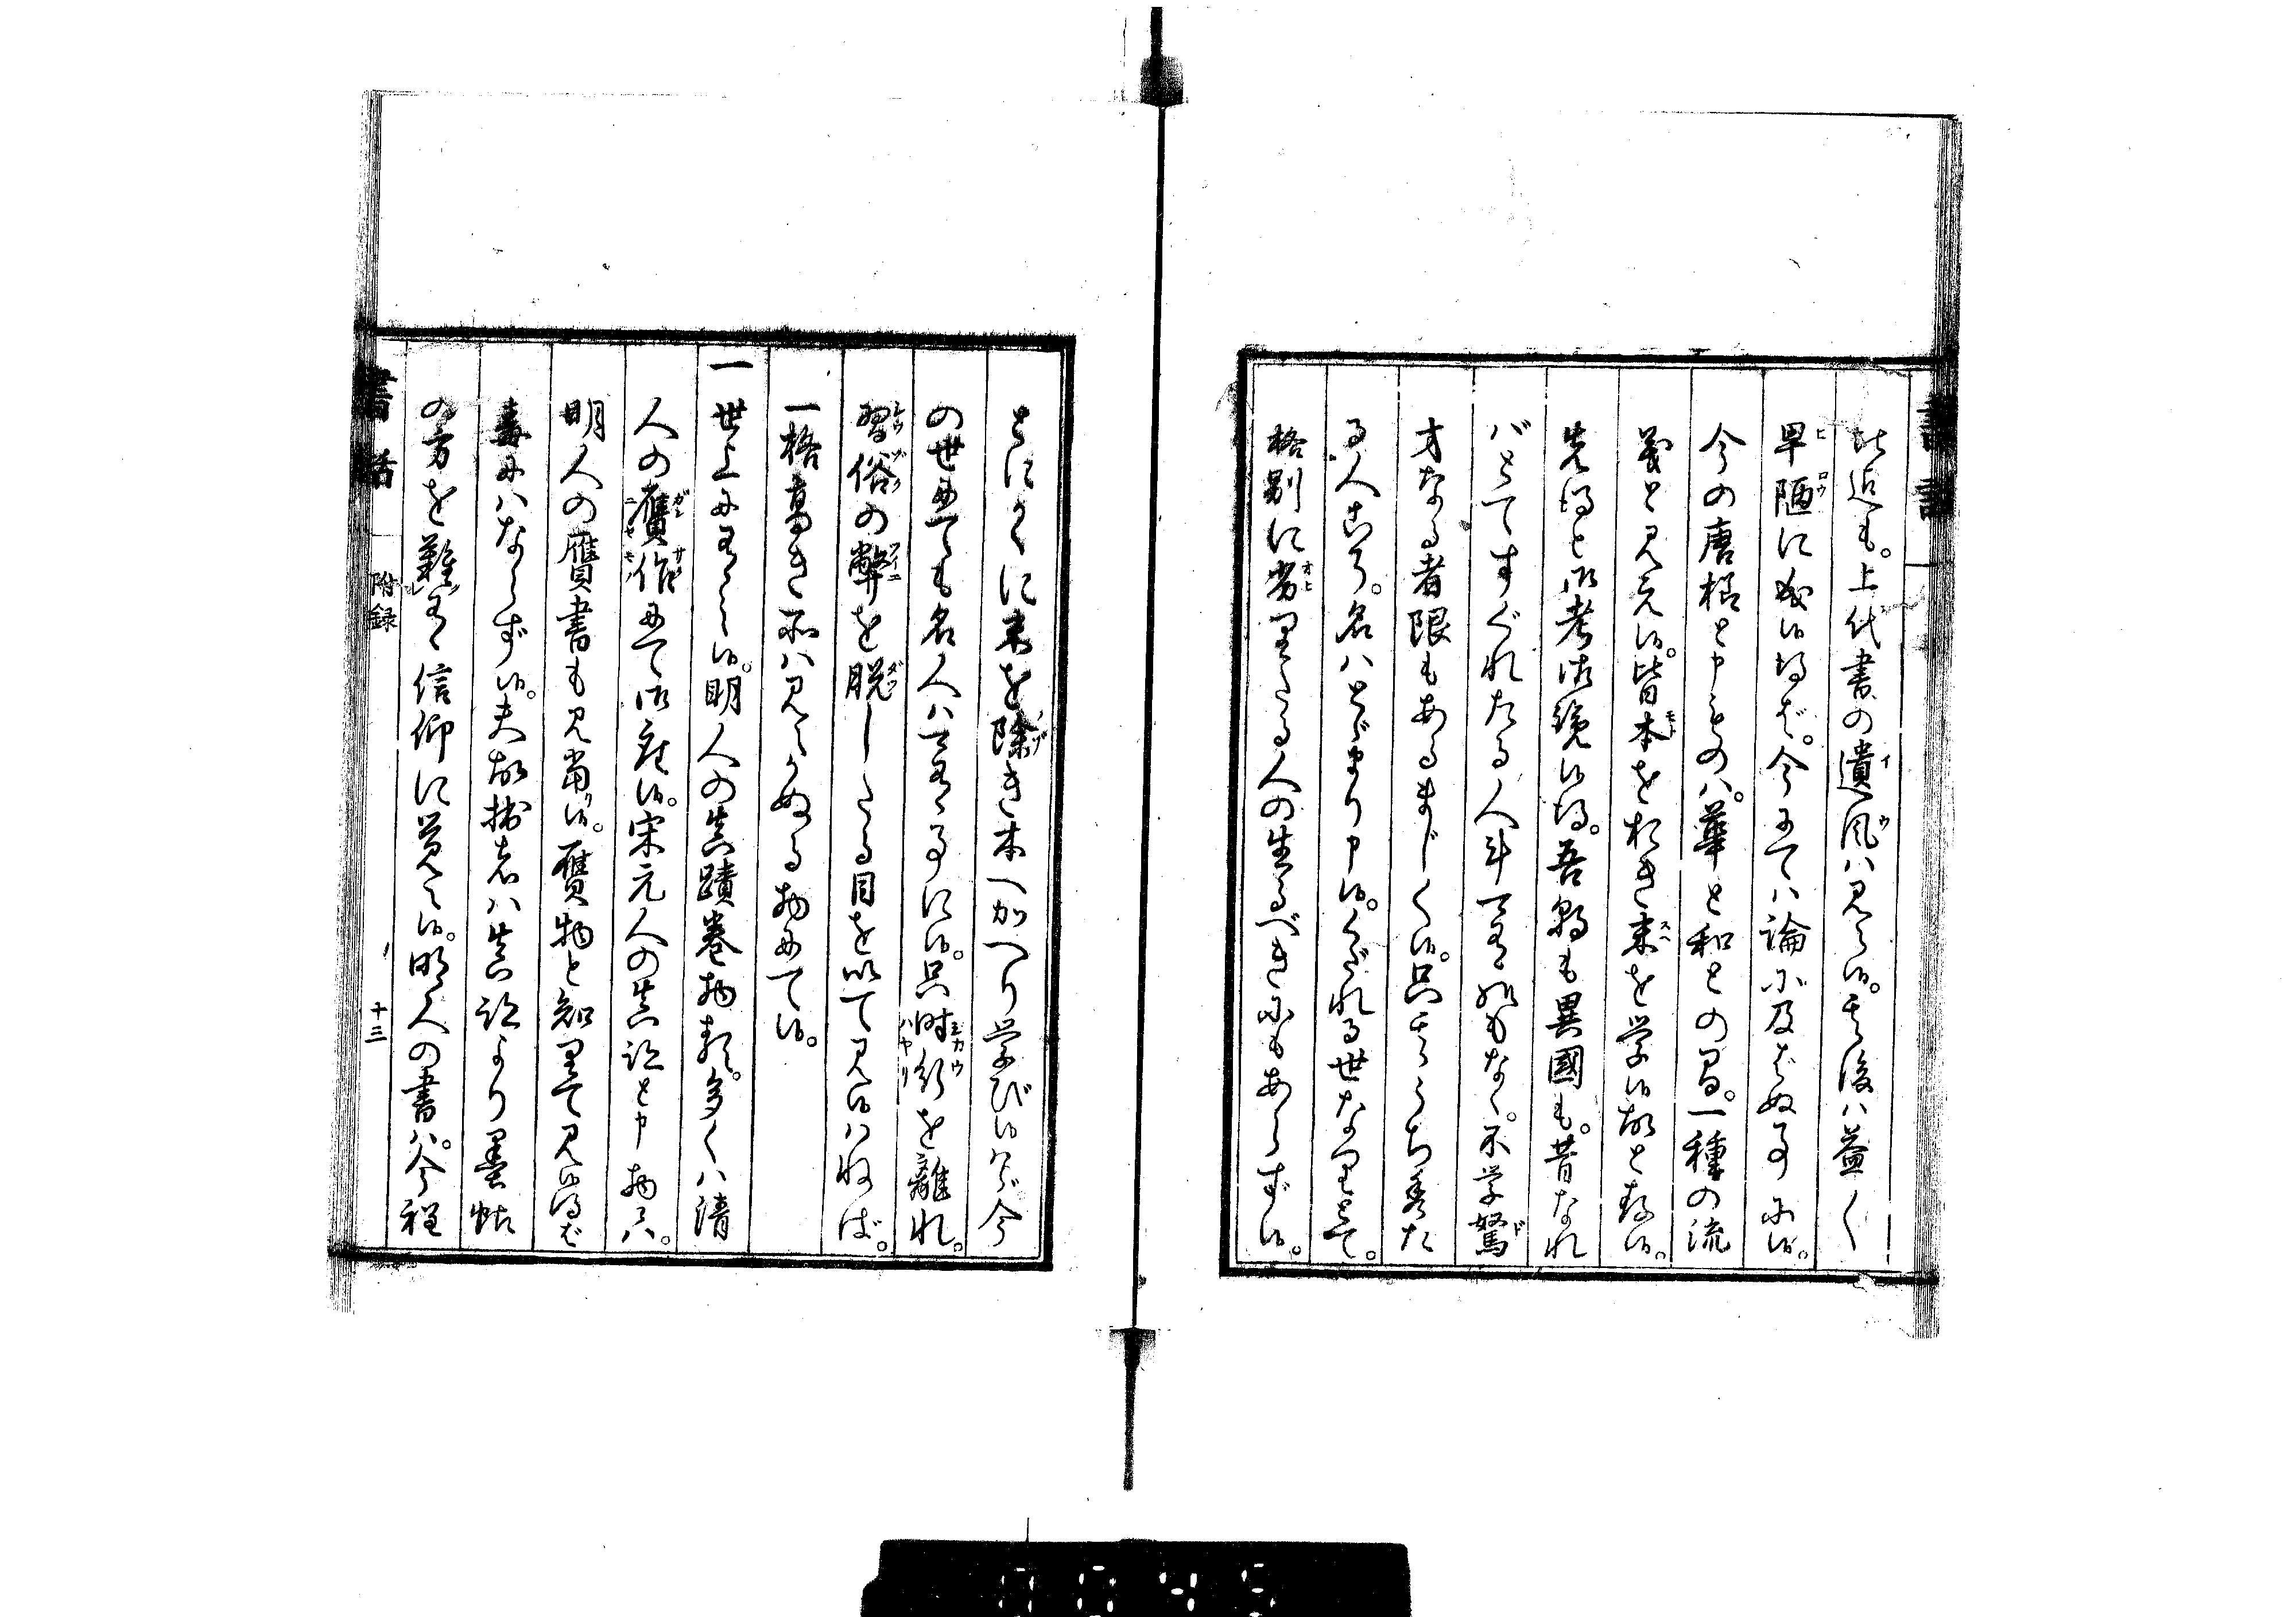 此迄も。上代書の遺風ハ見え候。其後ハ益〻
卑陋に成候得ば。今にてハ論に及ばぬ事に候。
今の唐様と申ものハ。華と和との間。一種の流
義と見え候。皆本をおき末を学候故と存候。
先得と御考御覧候得。吾朝も異國も。昔なれ
バとてすぐれたる人斗
才なる者限もあるまじく候。只其うち秀た
る人こそ。名ハとゞまり申候。くだれる世なりとて。
格別に劣りたる人の生るべきにもあらず候。
とにかくに末を除き本へかへり学び候ハゞ今
の世にても名人ハ可有事に候。只時行を離れ。
習俗の弊を脱したる目を以て見候ハねば。
一格高き所ハ見えかぬる物にて候。
一世上に有之候。明人の真蹟巻物類。多くハ清
人の贋作にて御座候。宋元人の真跡と申物ハ。
明人の贋書も見當候。贋物と知りて見候得ば
毒にハならず候。夫故拙者ハ真跡より墨帖
の方を難有信仰に覚え候。明人の書ハ。今程
書話
附録
十三